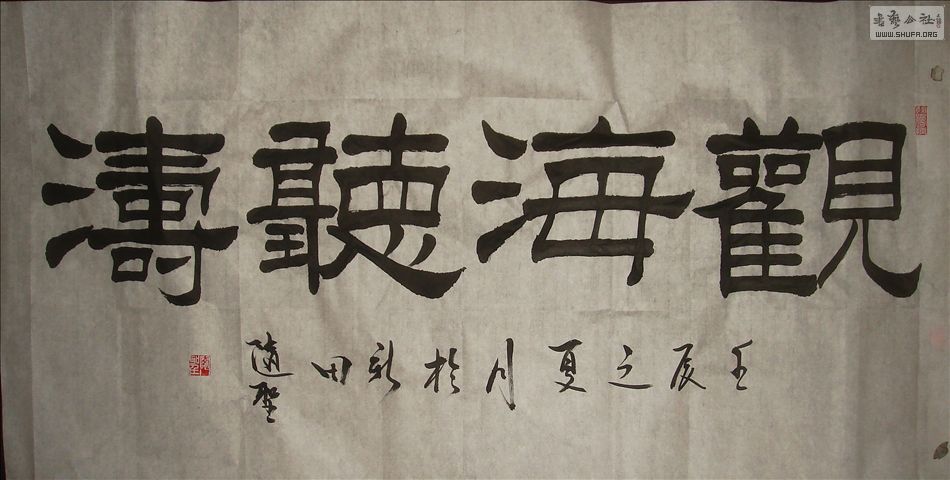 觀海聽濤
壬辰之夏月於新田
隨聖
书艺公社
WWW.SHUFA.ORG